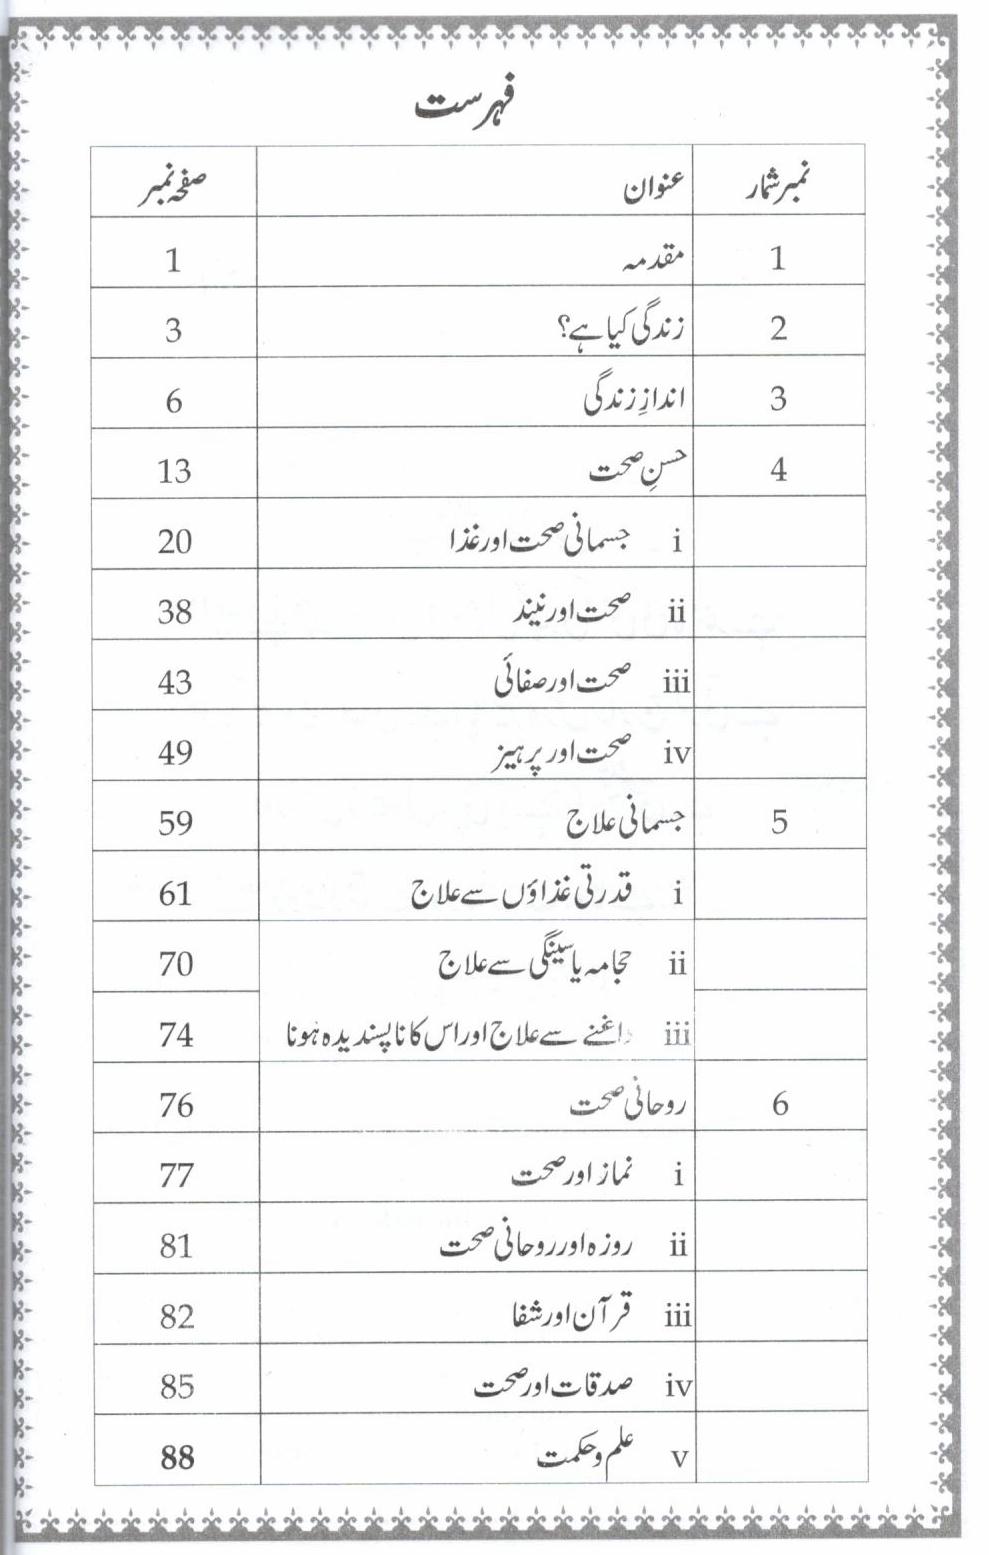 فہرست
نمبر شمار عنوان صفحہ نمبر
1 مقدمہ 1
2 زندگی کیا ہے؟ 3
3 اندازِ زندگی 6
4 حسنِ صحت 13
i جسمانی صحت اور غذا 20
ii صحت اور نیند 38
iii صحت اور صفائی 43
iv صحت اور پرہیز 49
5 جسمانی علاج 59
i قدرتی غذاؤں سے علاج 61
ii حجامہ یا سینگی سے علاج 70
iii داغنے سے علاج اور اس کا ناپسندیدہ ہونا 74
6 روحانی صحت 76
i نماز اور صحت 77
ii روزہ اور روحانی صحت 81
iii قرآن اور شفا 82
iv صدقات اور صحت 85
v علم و حکمت 88